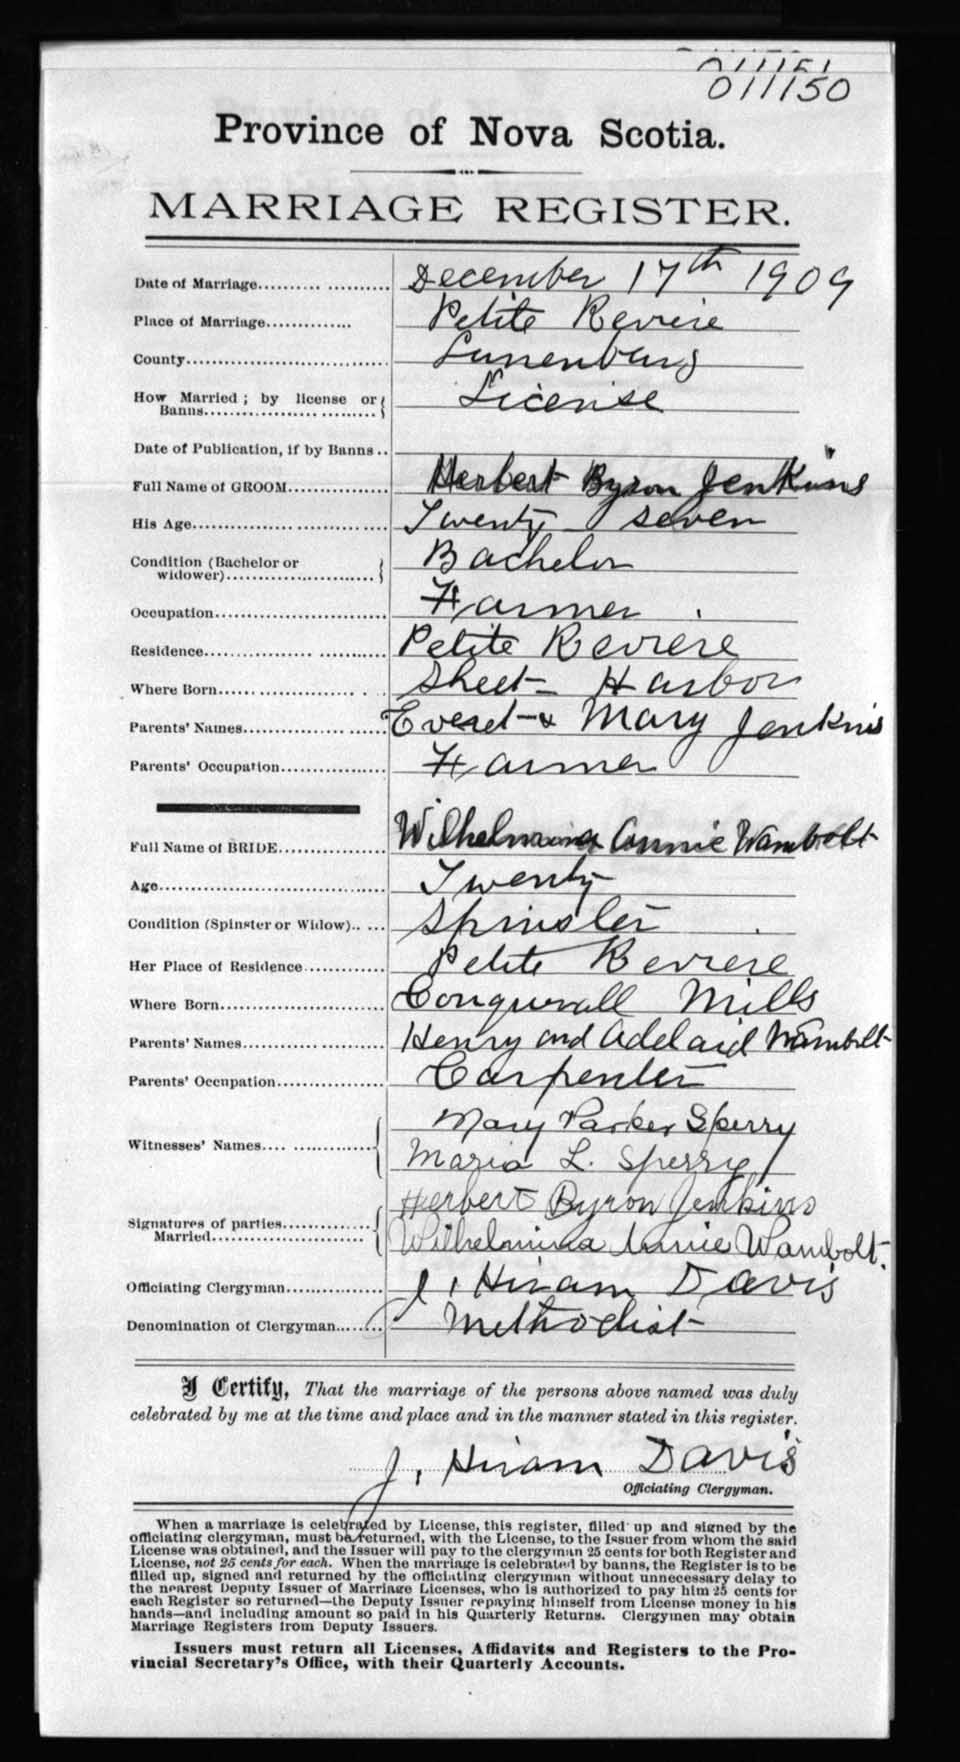 011151
011150
Province of Nova Scotia.
MARRIAGE REGISTER.
Date of Marriage.......... .......... December 17th 1909
Place of Marriage............. Petite Reviere
County................................. Lunenburg
How Married ; by license or License
Banns.................................
Date of Publication, if by Banns ..
Full Name of GROOM................ Herbert Byron Jenkins
His Age................................ Twenty Seven
Condition (Bachelor or Bachelor
widower)............................
Occupation............................ Farmer
Residence............................. Petite Reviere
Where Born......................... Sheet Harbor
Parents' Names....................... Everet & Mary Jenkins
Parents' Occupation................ Farmer
Full Name of BRIDE................ Wilhelmina Annie Wambolt
Age..................................... Twenty
Condition (Spinster or Widow).. ... Spinster
Her Place of Residence............ Petite Reviere
Where Born.......................... Conquerall Mills
Parents' Names....................... Henry and Adelaid Wambolt
Parents' Occupation................ Carpenter
Mary Parker Sperry
Witnesses' Names.... ............
Maria L. Sperry
Herbert Byron Jenkins
Signatures of parties..............
Married......................... Wilhelmina Annie Wambolt.
Officiating Clergyman............... J. Hiram Davis
Denomination of Clergyman........ Methodist
I Certify, That the marriage of the persons above named was duly
celebrated by me at the time and place and in the manner stated in this register.
J. Hiram Davis
Officiating Clergyman.
When a marriage is celebrated by License, this register, filled up and signed by the
officiating clergyman, must be returned, with the License, to the Issuer from whom the said
License was obtained, and the Issuer will pay to the clergyman 25 cents for both Register and
License, not 25 cents for each. When the marriage is celebrated by banns, the Register is to be
filled up, signed and returned by the officiating clergyman without unnecessary delay to
the nearest Deputy Issuer of Marriage Licenses, who is authorized to pay him 25 cents for
each Register so returned—the Deputy Issuer repaying himself from License money in his
hands—and including amount so paid in his Quarterly Returns. Clergymen may obtain
Marriage Registers from Deputy Issuers.
Issuers must return all Licenses, Affidavits and Registers to the Pro-
vincial Secretary's Office, with their Quarterly Accounts.